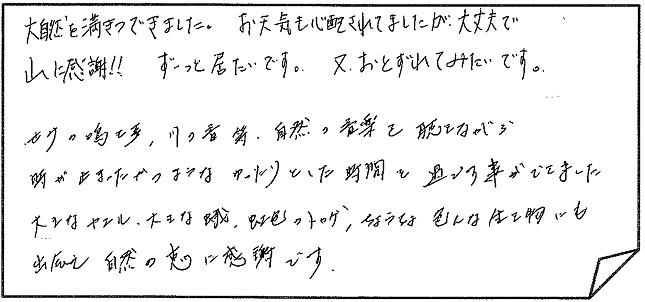 大自然を満きつできました。 お天気も心配されてましたが、大丈夫で
山に感謝!! ずーっと居たいです。 又、おとずれてみたいです。
の鳴き声、川の音 等、自然の音楽を聴きながら
時が止まったかのような ゆったりとした時間を過ごす事ができました
大きなカエル、大きな 虹色のトカゲ、 色んな生き物にも
出会え 自然の恵に感謝です.